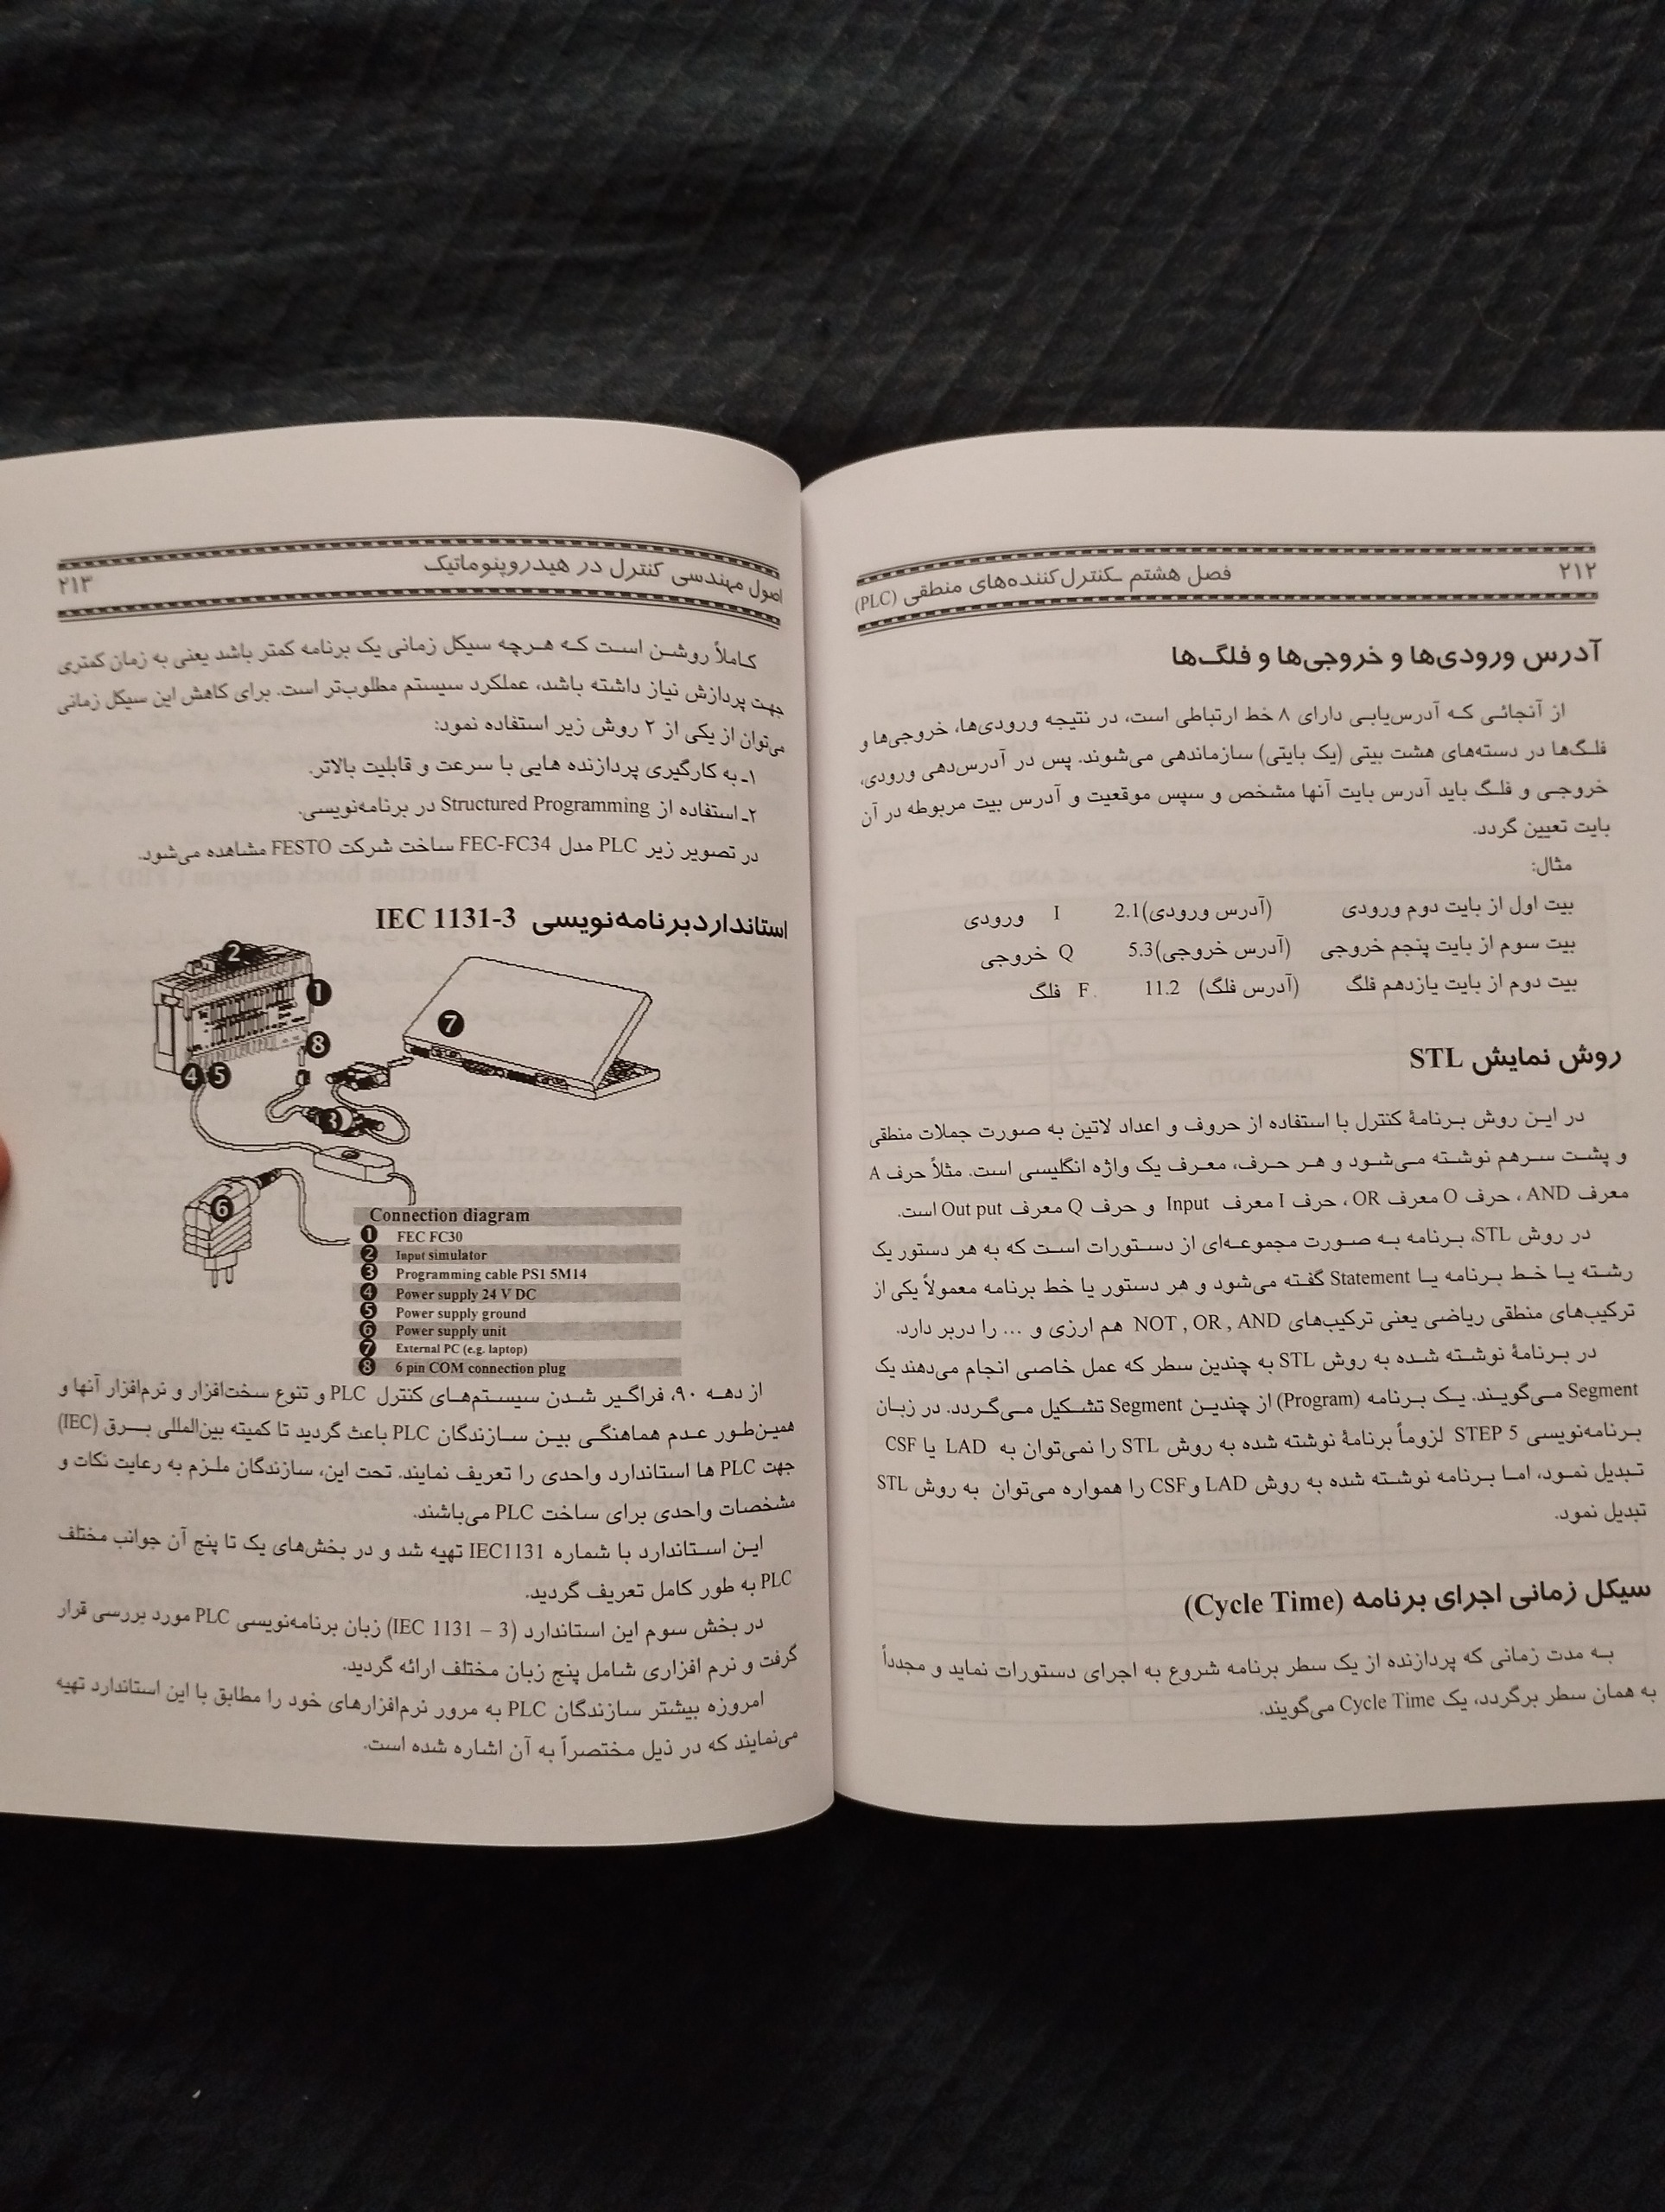 ۲۱۲
فصل هشتم ـکنترل‌کننده‌های منطقی (PLC)
آدرس ورودی‌ها و خروجی‌ها و فلگ‌ها
از آنجائی که آدرس‌یابی دارای ۸ خط ارتباطی است، در نتیجه ورودی‌ها، خروجی‌ها و
فلگ‌ها در دسته‌های هشت بیتی (یک بایتی) سازماندهی می‌شوند. پس در آدرس‌دهی ورودی،
خروجی و فلگ باید آدرس بایت آنها مشخص و سپس موقعیت و آدرس بیت مربوطه در آن
بایت تعیین گردد.
مثال:
بیت اول از بایت دوم ورودی (آدرس ورودی)2.1 I ورودی
بیت سوم از بایت پنجم خروجی (آدرس خروجی)5.3 Q خروجی
بیت دوم از بایت یازدهم فلگ (آدرس فلگ) 11.2 F فلگ
روش نمایش STL
در این روش برنامهٔ کنترل با استفاده از حروف و اعداد لاتین به صورت جملات منطقی
و پشت سرهم نوشته می‌شود و هر حرف، معرف یک واژه انگلیسی است. مثلاً حرف A
معرف AND ، حرف O معرف OR ، حرف I معرف Input و حرف Q معرف Out put است.
در روش STL، برنامه به صورت مجموعه‌ای از دستورات است که به هر دستور یک
رشته یا خط برنامه یا Statement گفته می‌شود و هر دستور یا خط برنامه معمولاً یکی از
ترکیب‌های منطقی ریاضی یعنی ترکیب‌های NOT , OR , AND هم ارزی و ... را دربر دارد.
در برنامهٔ نوشته شده به روش STL به چندین سطر که عمل خاصی انجام می‌دهند یک
Segment می‌گویند. یک برنامه (Program) از چندین Segment تشکیل می‌گردد. در زبان
برنامه‌نویسی STEP 5 لزوماً برنامهٔ نوشته شده به روش STL را نمی‌توان به LAD یا CSF
تبدیل نمود، اما برنامه نوشته شده به روش LAD و CSF را همواره می‌توان به روش STL
تبدیل نمود.
سیکل زمانی اجرای برنامه (Cycle Time)
به مدت زمانی که پردازنده از یک سطر برنامه شروع به اجرای دستورات نماید و مجدداً
به همان سطر برگردد، یک Cycle Time می‌گویند.
اصول مهندسی کنترل در هیدروپنوماتیک
۲۱۳
کاملاً روشن است که هرچه سیکل زمانی یک برنامه کمتر باشد یعنی به زمان کمتری
جهت پردازش نیاز داشته باشد، عملکرد سیستم مطلوب‌تر است. برای کاهش این سیکل زمانی
می‌توان از یکی از ۲ روش زیر استفاده نمود:
۱ـ به کارگیری پردازنده هایی با سرعت و قابلیت بالاتر.
۲ـ استفاده از Structured Programming در برنامه‌نویسی.
در تصویر زیر PLC مدل FEC-FC34 ساخت شرکت FESTO مشاهده می‌شود.
استانداردبرنامه‌نویسی IEC 1131-3
2
1
8
7
4 5
3
6
Connection diagram
1 FEC FC30
2 Input simulator
3 Programming cable PS1 5M14
4 Power supply 24 V DC
5 Power supply ground
6 Power supply unit
7 External PC (e.g. laptop)
8 6 pin COM connection plug
از دهه ۹۰، فراگیر شدن سیستم‌های کنترل PLC و تنوع سخت‌افزار و نرم‌افزار آنها و
همین‌طور عدم هماهنگی بین سازندگان PLC باعث گردید تا کمیته بین‌المللی برق (IEC)
جهت PLC ها استاندارد واحدی را تعریف نمایند. تحت این، سازندگان ملزم به رعایت نکات و
مشخصات واحدی برای ساخت PLC می‌باشند.
این استاندارد با شماره IEC1131 تهیه شد و در بخش‌های یک تا پنج آن جوانب مختلف
PLC به طور کامل تعریف گردید.
در بخش سوم این استاندارد (IEC 1131 – 3) زبان برنامه‌نویسی PLC مورد بررسی قرار
گرفت و نرم افزاری شامل پنج زبان مختلف ارائه گردید.
امروزه بیشتر سازندگان PLC به مرور نرم‌افزارهای خود را مطابق با این استاندارد تهیه
می‌نمایند که در ذیل مختصراً به آن اشاره شده است.